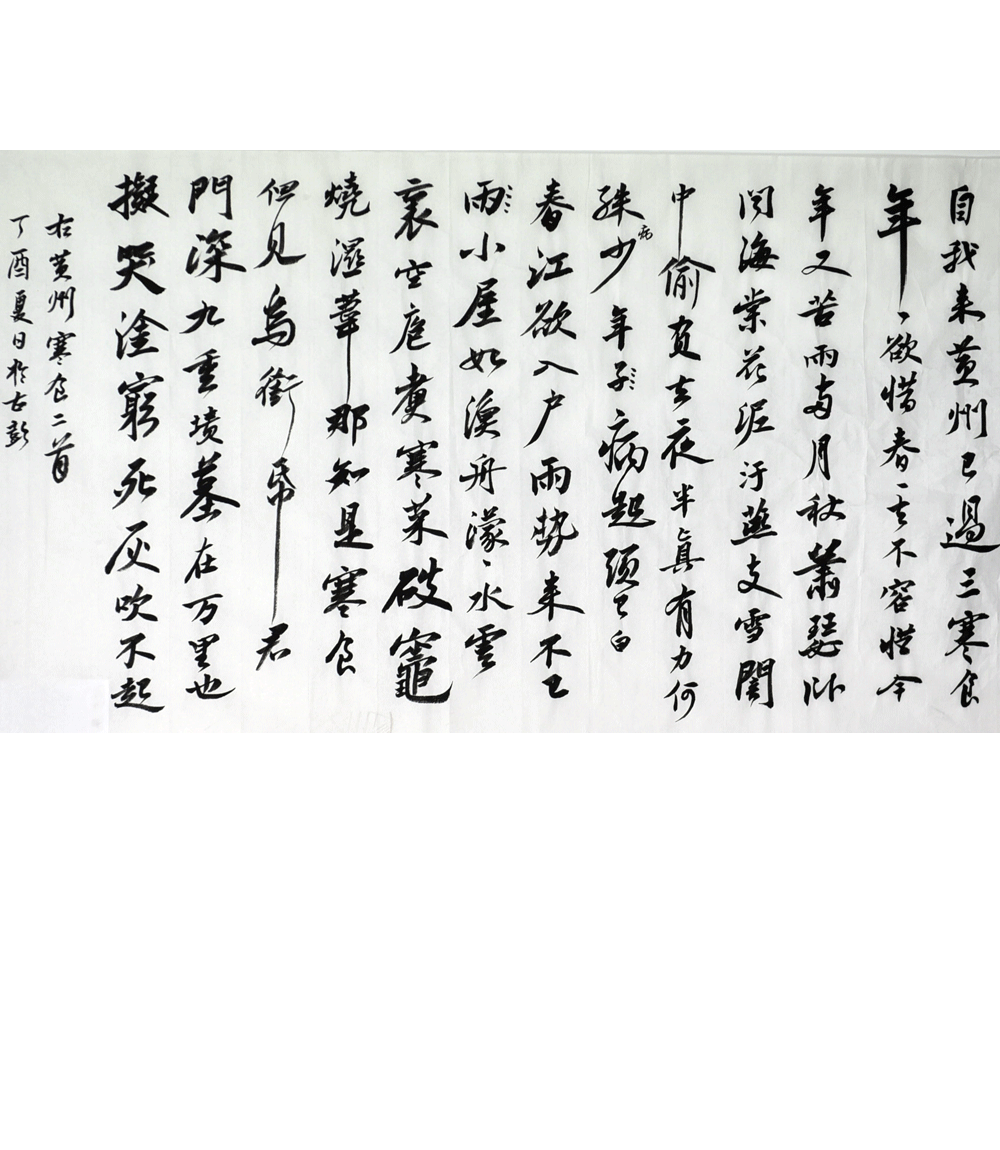 自我来黄州已過三寒食
年〻欲惜春〻去不容惜今
年又苦雨兩月秋蕭瑟卧
闻海棠花泥汙燕支雪闇
中偷負去夜半真有力何
殊少年子病起頭已白
春江欲入户雨勢来不已
雨小屋如漁舟濛〻水雲
裏空庖煮寒菜破竈
燒濕葦那知是寒食
但见烏銜帋君
門深九重墳墓在万里也
擬哭塗窮死灰吹不起
右黄州寒食二首
丁酉夏日於古彭